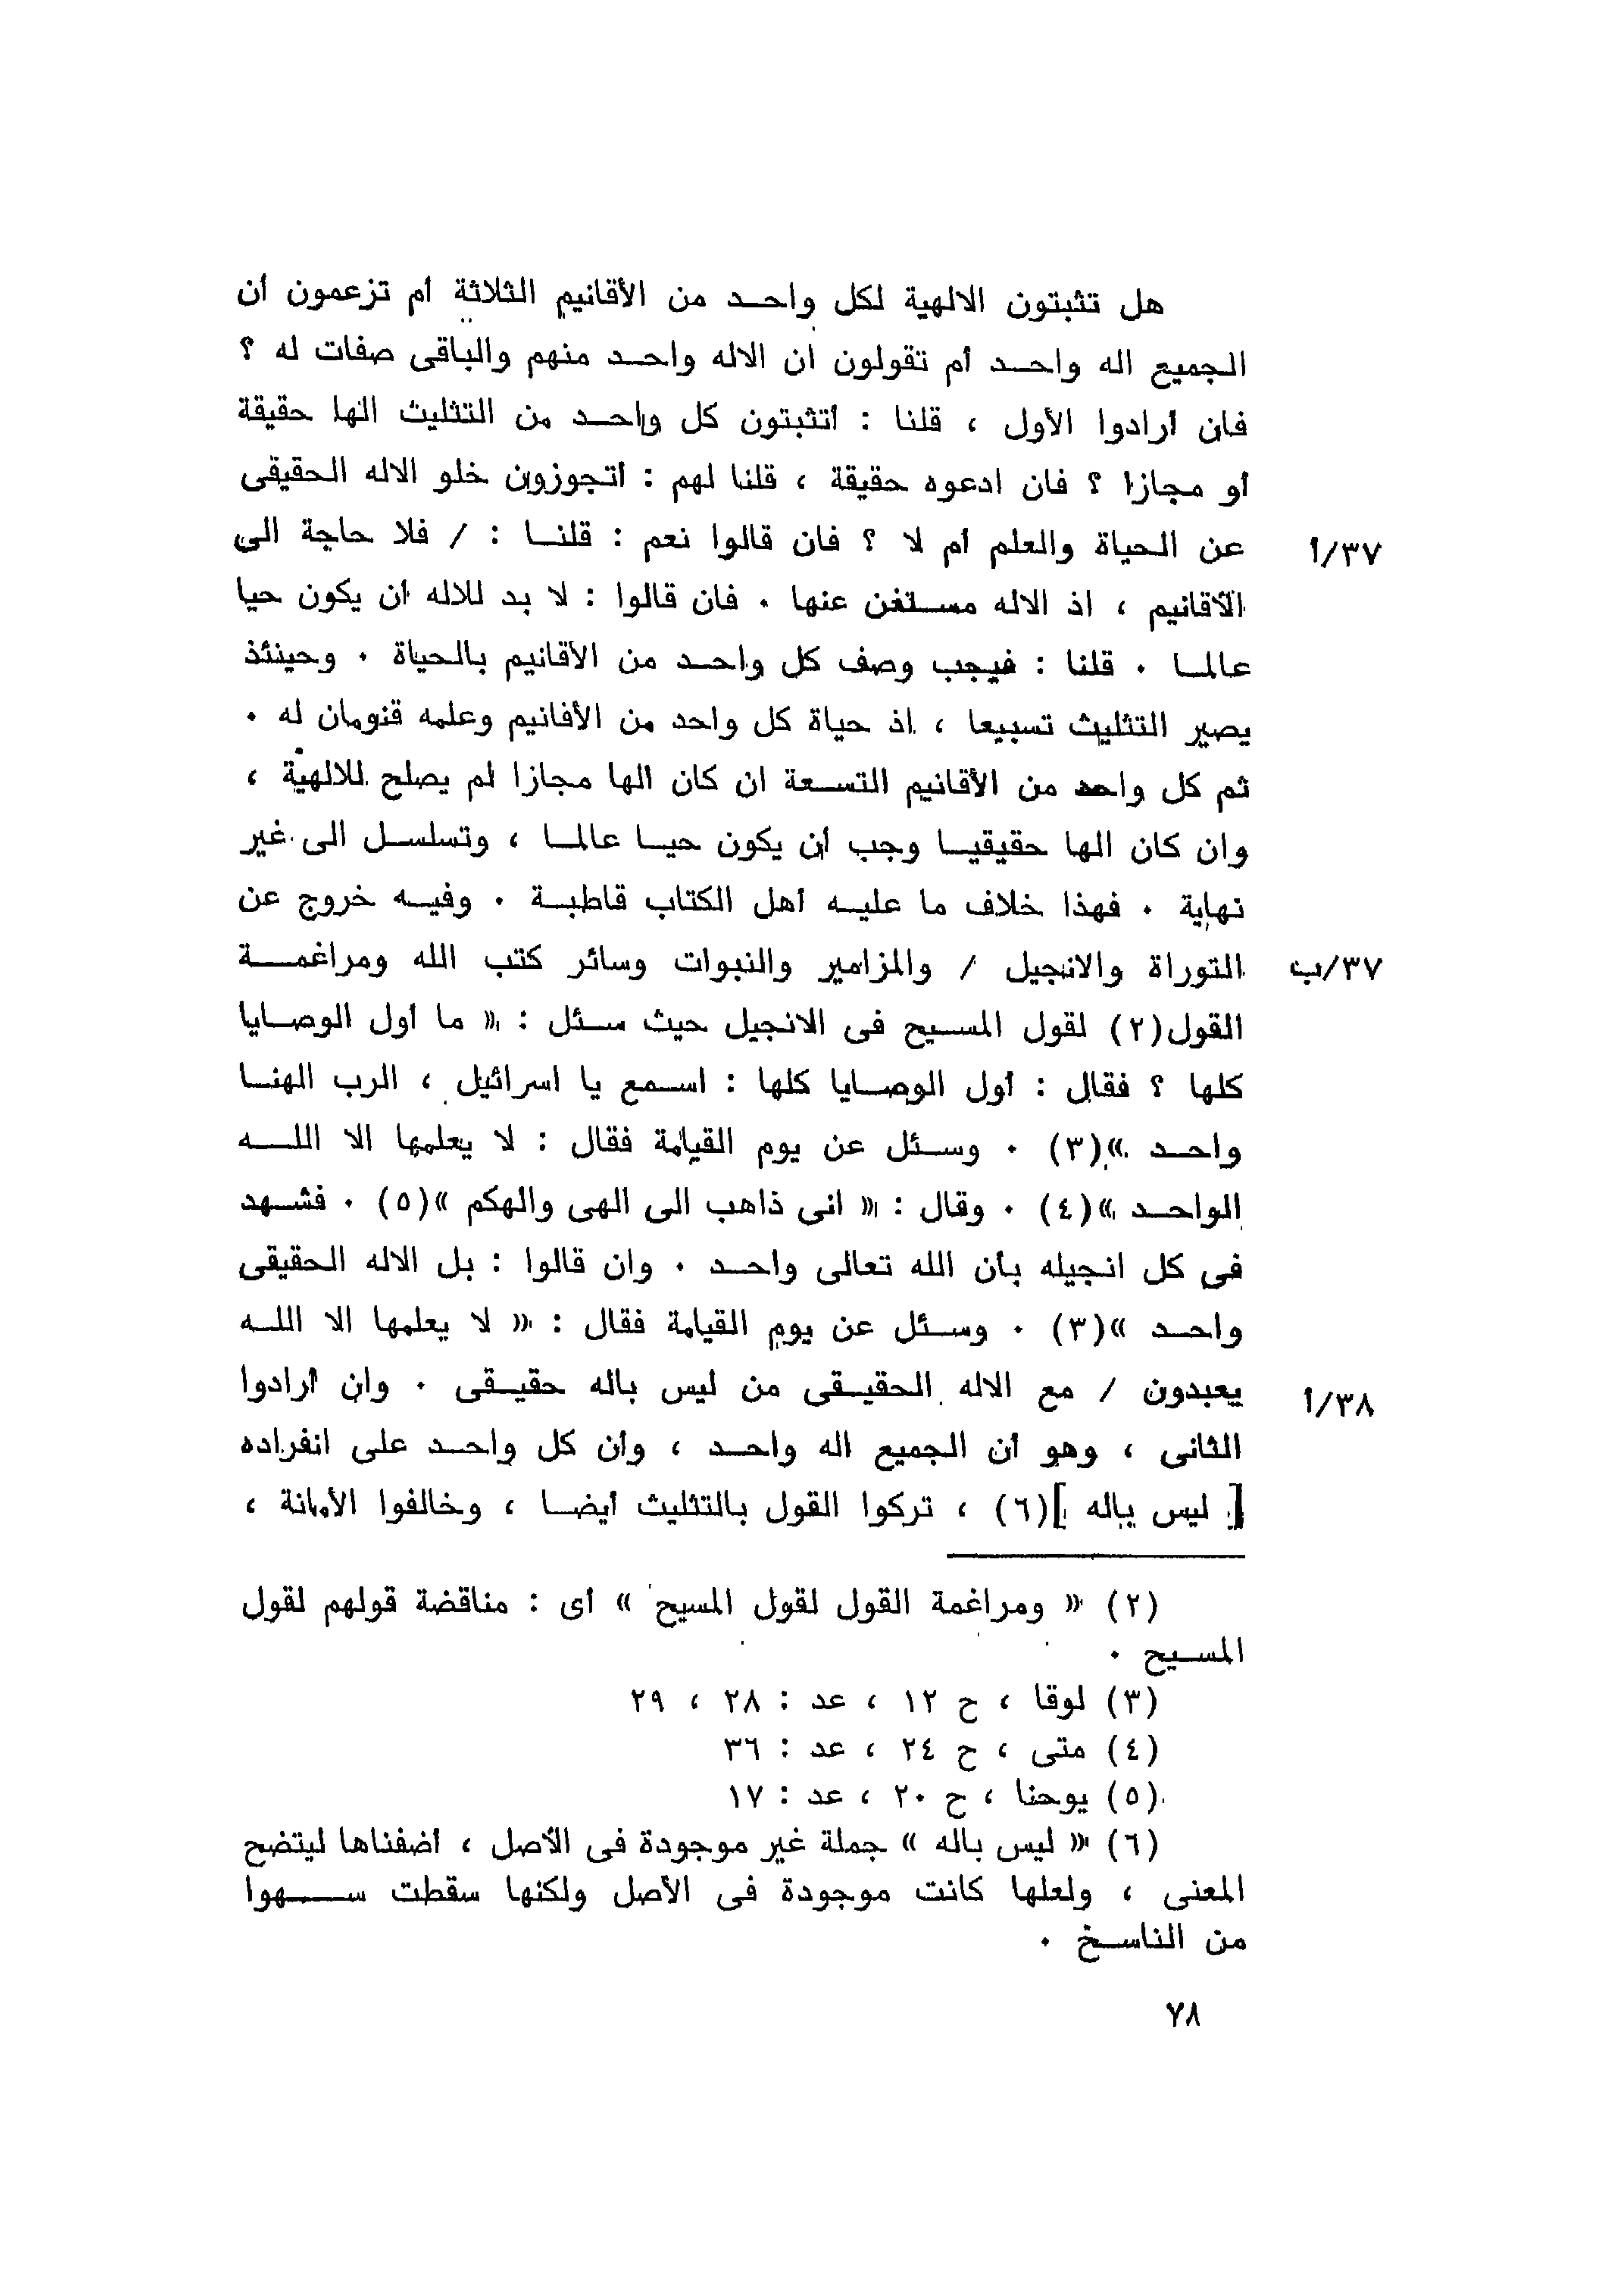 هل تثبتون الالهية لكل واحد من الأقانيم الثلاثة أم تزعمون أن
الجميع اله واحد أم تقولون ان الاله واحد منهم والباقى صفات له ؟
فان أرادوا الأول ، قلنا : أتثبتون كل واحد من التثليث الها حقيقة
أو مجازا ؟ فان ادعوه حقيقة ، قلنا لهم : أتجوزون خلو الاله الحقيقى
عن الحياة والعلم أم لا ؟ فان قالوا نعم : قلنا : / فلا حاجة الى ٣٧/أ
الأقانيم ، اذ الاله مستغن عنها . فان قالوا : لا بد للاله أن يكون حيا
عالما . قلنا : فيجب وصف كل واحد من الأقانيم بالحياة . وحينئذ
يصير التثليث تسبيعا ، اذ حياة كل واحد من الأقانيم وعلمه قنومان له .
ثم كل واحد من الأقانيم التسعة ان كان الها مجازا لم يصلح للالهية ،
وان كان الها حقيقيا وجب أن يكون حيا عالما ، وتسلسل الى غير
نهاية . فهذا خلاف ما عليه أهل الكتاب قاطبة . وفيه خروج عن
التوراة والانجيل / والمزامير والنبوات وسائر كتب الله ومراغمة ٣٧/ب
القول(٢) لقول المسيح فى الانجيل حيث سئل : « ما أول الوصايا
كلها ؟ فقال : أول الوصايا كلها : اسمع يا اسرائيل ، الرب الهنا
واحد »(٣) . وسئل عن يوم القيامة فقال : لا يعلمها الا الله
الواحد »(٤) . وقال : « انى ذاهب الى الهى والهكم »(٥) . فشهد
فى كل انجيله بأن الله تعالى واحد . وان قالوا : بل الاله الحقيقى
واحد »(٣) . وسئل عن يوم القيامة فقال : « لا يعلمها الا الله
يعبدون / مع الاله الحقيقى من ليس باله حقيقى . وان أرادوا ٣٨/أ
الثانى ، وهو أن الجميع اله واحد ، وأن كل واحد على انفراده
[ ليس باله ](٦) ، تركوا القول بالتثليث أيضا ، وخالفوا الأمانة ،
(٢) « ومراغمة القول لقول المسيح » أى : مناقضة قولهم لقول
المسيح .
(٣) لوقا ، ح ١٢ ، عد : ٢٨ ، ٢٩
(٤) متى ، ح ٢٤ ، عد : ٣٦
(٥) يوحنا ، ح ٢٠ ، عد : ١٧
(٦) « ليس باله » جملة غير موجودة فى الأصل ، أضفناها ليتضح
المعنى ، ولعلها كانت موجودة فى الأصل ولكنها سقطت سهوا
من الناسخ .
٧٨